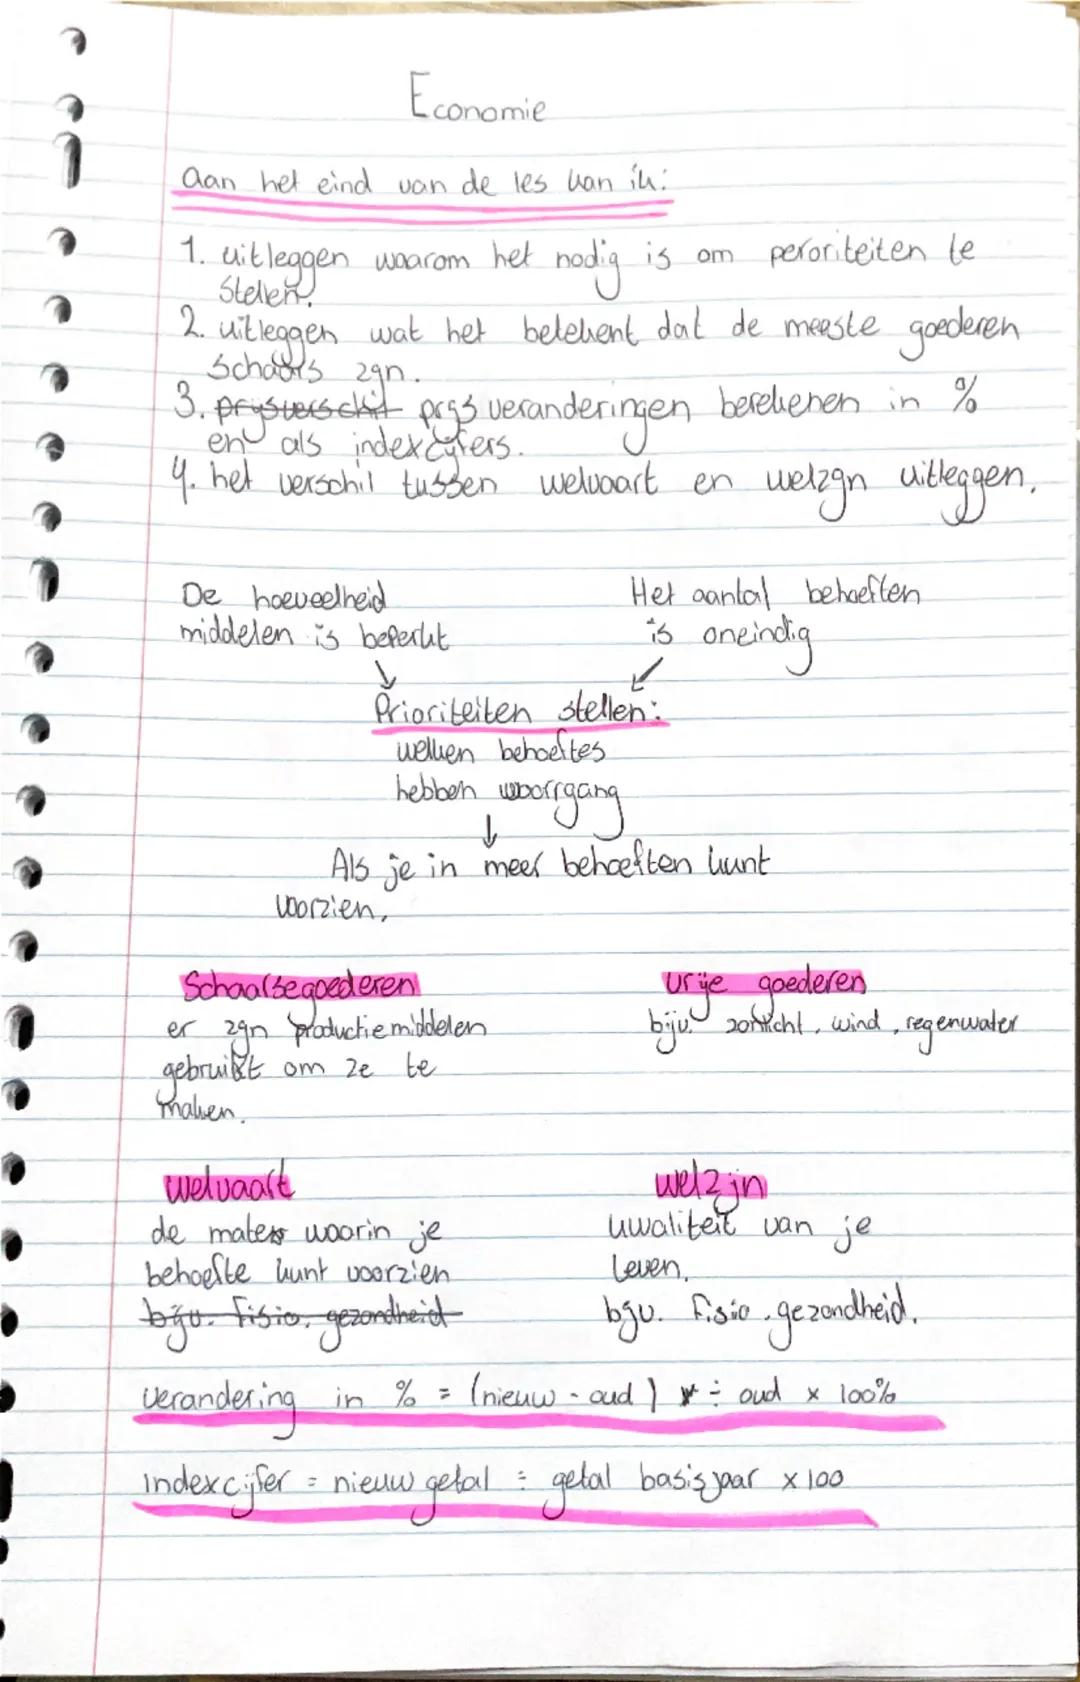 Economie
aan het eind van de les kan ik:
1. uitleggen waarom het nodig is om peroriteiten te
stellen.
2. uitleggen wat het betekent dat de meeste goederen
schaars zijn.
3. prijsverschil prijs veranderingen berekenen in %
en als indexcijfers.
4. het verschil tussen welvaart en welzijn uitleggen.
De hoeveelheid
middelen is beperkt
Het aantal behoeften
is oneindig
Prioriteiten stellen:
welken behoeftes
hebben voorrgang
Als je in meer behoeften kunt
voorzien.
Schaarse goederen
er zijn productiemiddelen
gebruikt om ze te
maken.
vrije goederen
bijv. zonlicht, wind, regenwater
welvaart
de mate waarin je
behoefte kunt voorzien
bijv. fisio. gezondheid
welzijn
kwaliteit van je
leven.
bijv. fisio. gezondheid.
verandering in % = (nieuw - oud) ÷ oud x 100%
indexcijfer = nieuw getal ÷ getal basisjaar x 100